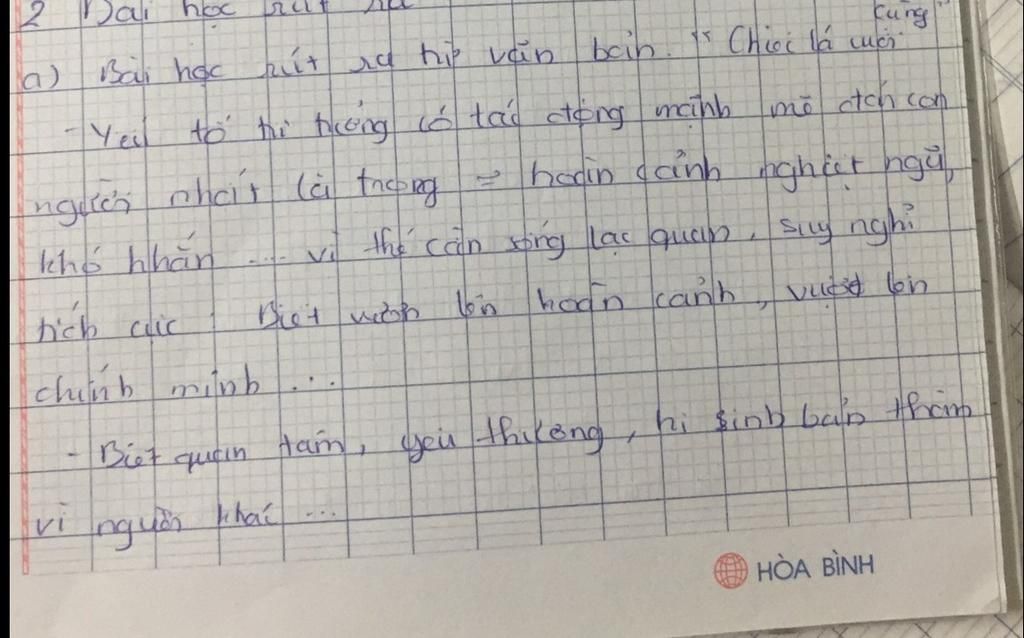 2 Bài học rút ra
a) Bài học rút ra từ văn bản. "Chiếc lá cuối cùng"
- Yếu tố tư tưởng có tác động mạnh mẽ đến con
người nhất là trong hoàn cảnh nghiệt ngã,
khó khăn ... vì thế cần sống lạc quan, suy nghĩ
tích cực Biết vươn lên hoàn cảnh, vượt lên
chính mình ...
- Biết quan tâm, yêu thương, hi sinh bản thân
vì người khác ...
HÒA BÌNH